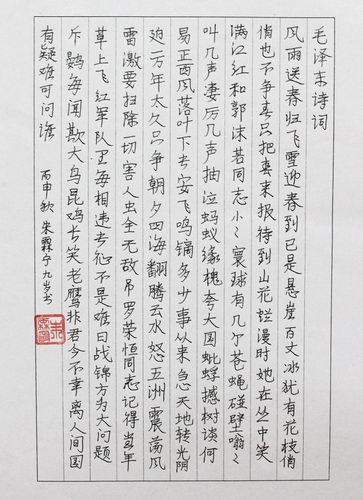 毛泽东诗词
风雨送春归飞雪迎春到已是悬崖百丈冰犹有花枝俏
俏也不争春只把春来报待到山花烂漫时她在丛中笑
满江红和郭沫若同志小〻寰球有几个苍蝇碰壁嗡〻
叫几声凄厉几声抽泣蚂蚁缘槐夸大国蚍蜉撼树谈何
易正西风落叶下长安飞鸣镝多少事从来急天地转光阴
迫一万年太久只争朝夕四海翻腾云水怒五洲震荡风
雷激要扫除一切害人虫全无敌吊罗荣恒同志记得当年
草上飞红军队里每相违长征不是难曰战锦方为大问题
斥鷃每闻欺大鸟昆鸡长笑老鹰非君今不幸离人间国
有疑难可问谁 丙申秋 朱霖宁九岁书